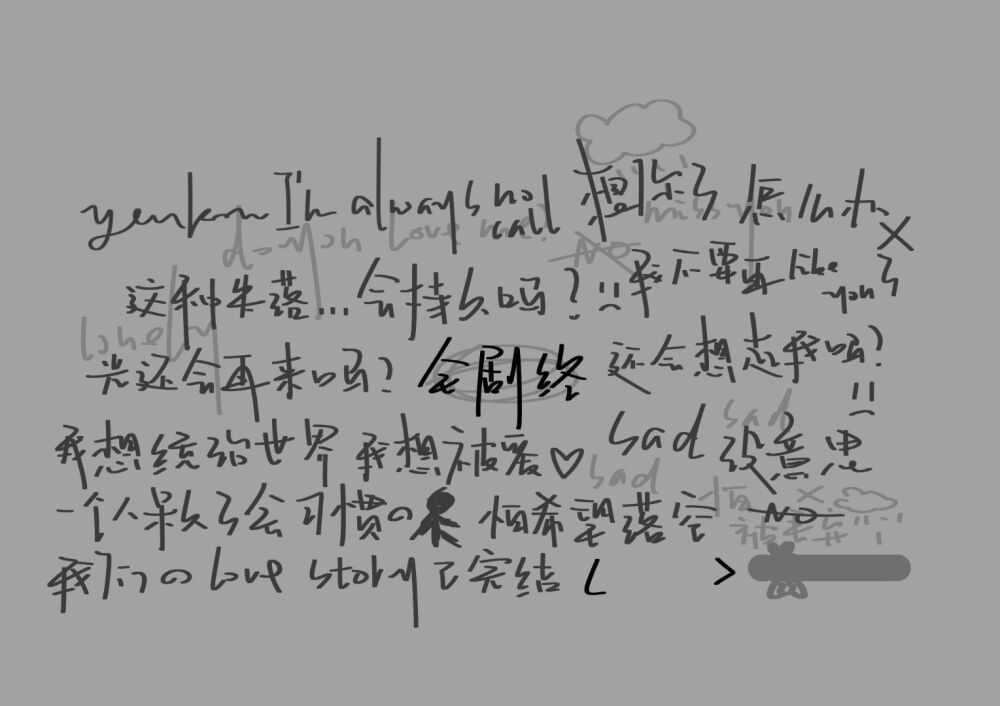 I'm always no call
这种失落...会持久吗? 我不要再like you了
光还会再来吗? 全剧终 还会想念我吗?
我想统治世界 我想被爱♡ sad 没意思
一个人呆久了会习惯の 怕希望落空
我们のlove story已完结
love me?
miss you
NO
lonely
sad
sad
NO